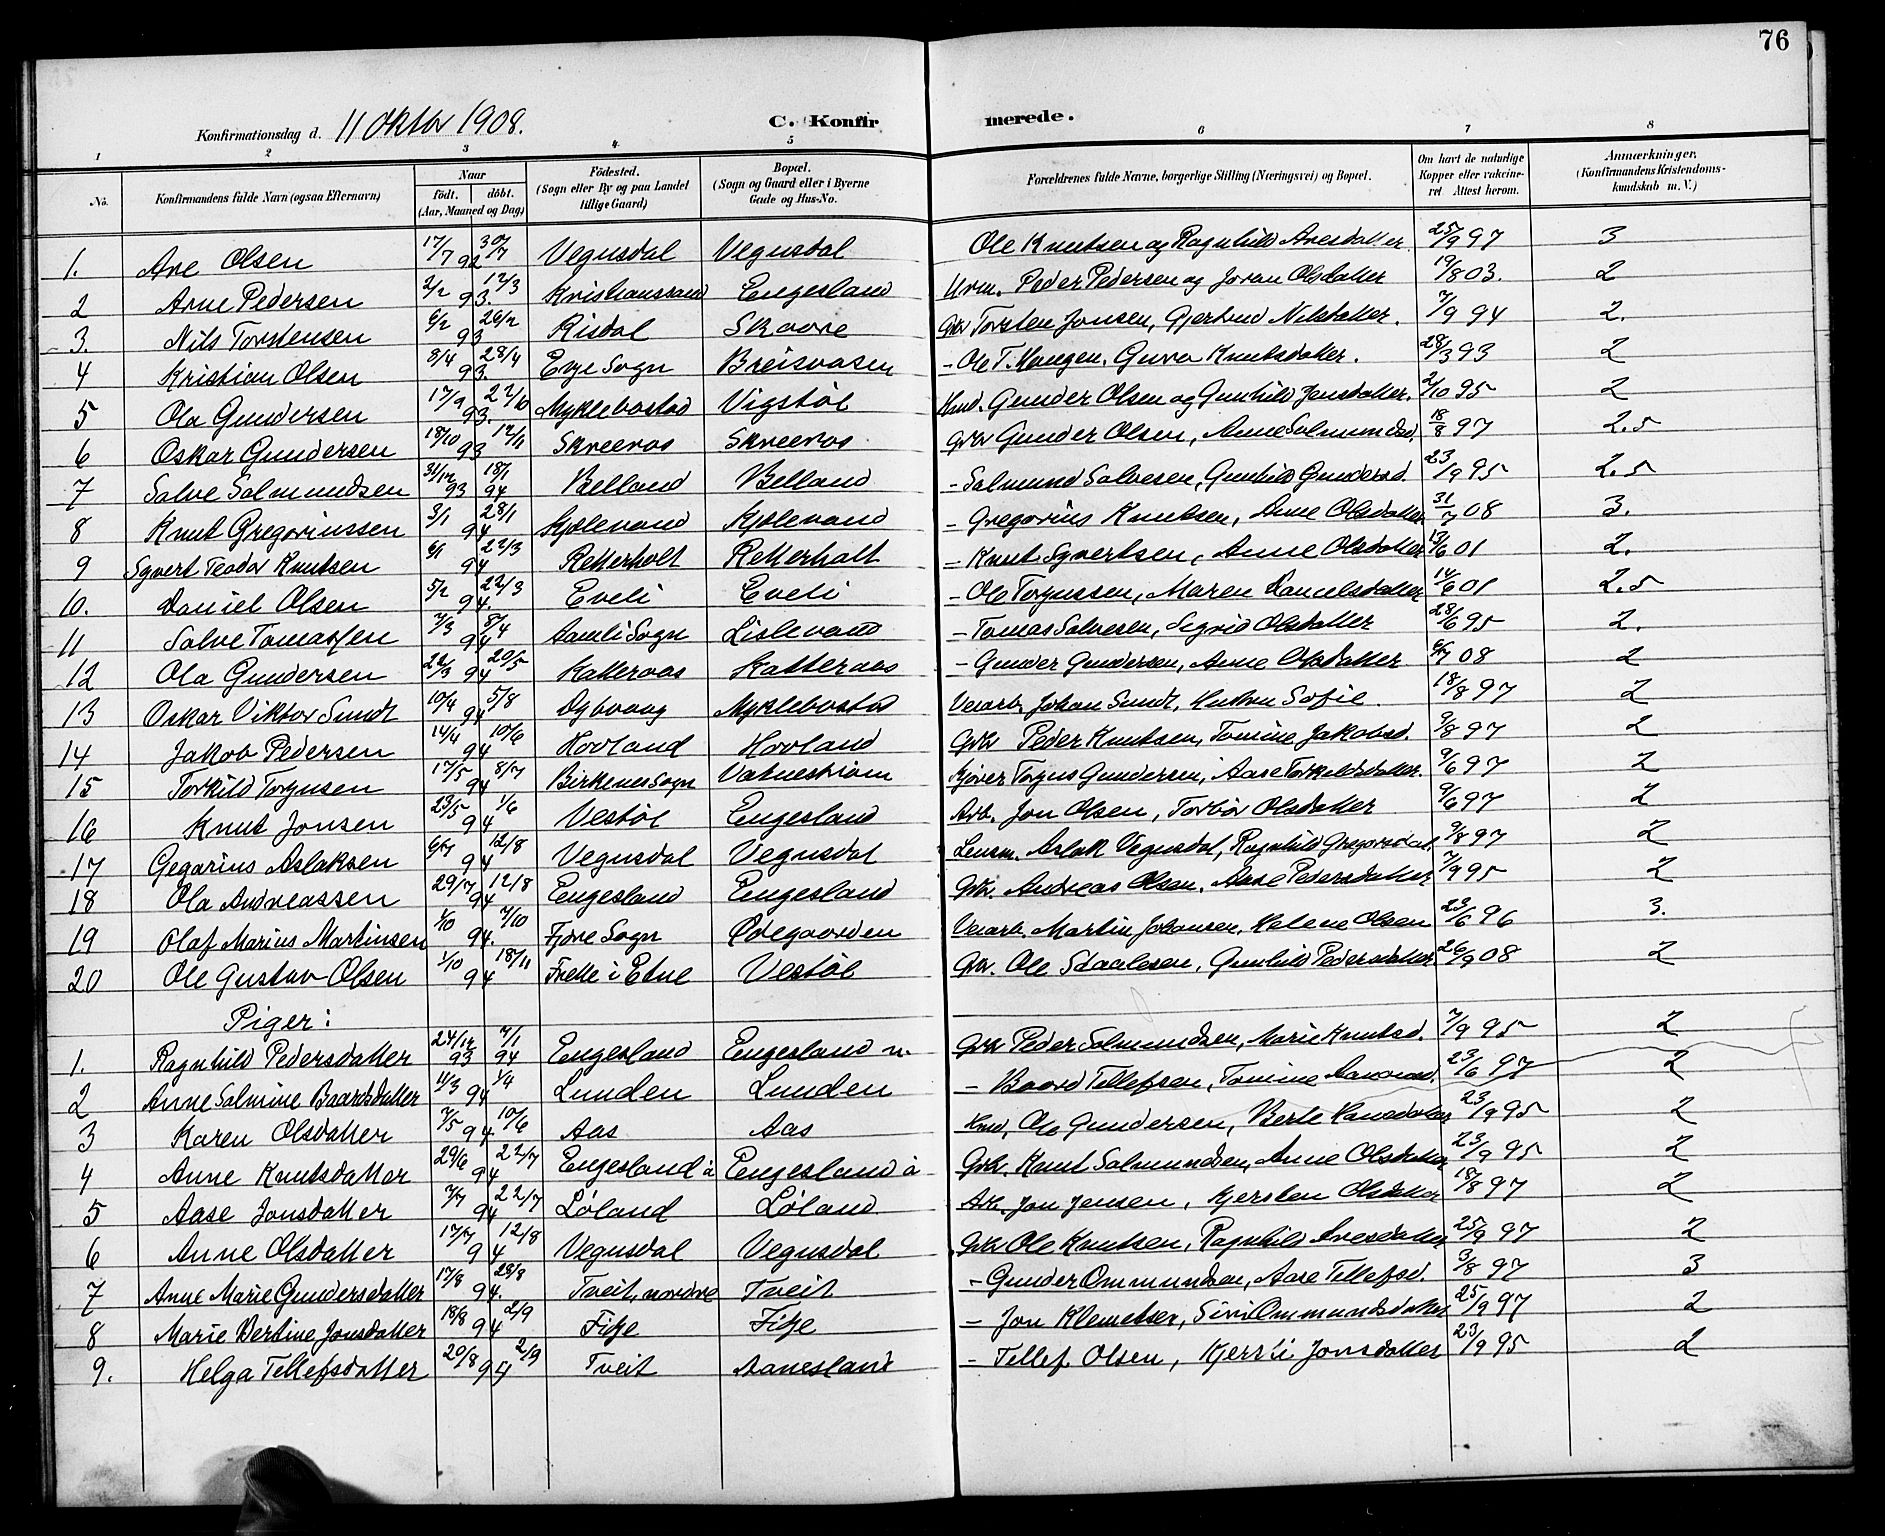 76
Konfirmationsdag d. 11 Oktbr 1908.
C. Konfirmerede.
1 2 3 4 5 6 7 8
No. Konfirmandens fulde Navn (ogsaa Efternavn) Naar født. døbt. (Aar, Maaned og Dag) Fødested. (Sogn eller By og paa Landet tillige Gaard) Bopæl. (Sogn og Gaard eller i Byerne Gade og Hus-No. Forældrenes fulde Navne, borgerlige Stilling (Næringsvei) og Bopæl. Om havt de naturlige Kopper eller vakcineret. Attest herom. Anmærkninger. (Konfirmandens Kristendomskundskab m. V.)
1. Ave Olsen 17/7 92 30/7 Vegusdal Vegusdal Ole Knutsen og Ragnhild Avesdatter 25/9 97 3
2 Arne Pedersen 2/2 93. 12/3 Kristianssand Engesland Urm. Peder Pedersen og Joran Olsdatter 19/8 03. 2
3. Nils Torstensen 6/2 93 26/2 Risdal Skaare Gbr Torsten Jonsen, Gjertrud Nilsdatter. 7/9 94 2.
4 Kristian Olsen 8/4 93. 28/4 Evje Sogn Breisvasen - Ole T. Haugen, Guro Knutsdatter. 28/3 93 2
5 Ola Gundersen 17/9 93. 22/10 Myklebostad Vigstøl Kmd. Gunder Olsen og Gunhild Jensdatter. 2/10 95 2
6 Oskar Gundersen 18/10 93 12/11 Skreeros Skreeros Gbr Gunder Olsen, Anne Salmundsd. 18/8 97 2.5
7 Salve Salmundsen 31/12 93 18/1 94 Belland Belland - Salmund Salvesen, Gunhild Gundersd. 23/9 95 2.5
8 Knut Gregoriussen 3/1 94 28/1 Kjølevand Kjølevand - Gregorius Knutsen, Anne Olsdatter 31/7 08 3.
9 Syvert Teodor Knutsen 6/1 94 22/3 Retterholt Retterholt - Knut Syvertsen, Anne Olsdatter 13/6 01 2.
10. Daniel Olsen 5/2 94. 22/3 Eveli Eveli - Ole Torjussen, Maren Danielsdatter 14/6 01 2.5
11 Salve Tomassen 7/3 94 8/4 Aamli Sogn Lislevand - Tomas Salvesen, Sigrid Olsdatter 28/6 95 2.
12 Ola Gundersen 22/3 94 20/5 Katteraas Katteraas - Gunder Gundersen, Anne Olsdatter 6/7 08 2
13 Oskar Viktor Sundt 10/4 94 5/8 Dybvaag Myklebostad Veiarb. Johan Sundt, Hustru Sofie. 18/8 97 2
14 Jakob Pedersen 14/4 94 10/6 Hovland Hovland Gbr Peder Knutsen, Tomine Jakobsd. 9/8 97 2
15 Torkild Torjusen 17/5 94 8/7 Birkenes Sogn Vatnestrøm Torjus Gundersen, Aase Torkeldsdatter. 9/6 97 2
16 Knut Jonsen 23/5 94 1/6 Vestøl Engesland Arb. Jon Olsen, Torbør Olsdatter 9/6 97 2
17 Gegarius Aslaksen 6/7 94 12/8 Vegusdal Vegusdal Lensm. Aslak Vegusdal, Ragnhild Gregorsdat. 9/8 97 2
18 Ola Andreassen 29/7 94 12/8 Engesland Engesland Gbr. Andreas Olsen, Aase Pedersdatter 7/9 95 2
19 Olaf Marius Martinsen 1/10 94. 7/10 Fjære Sogn Ødegaarden Veiarb. Martin Johansen, Helene Olsen 23/6 96 3.
20 Ole Gustav Olsen 1/10 94 18/11 Frette i Etne Vestøl Gbr. Ole Staalesen, Gunhild Pedersdatter 26/9 08 2
Piger:
1. Ragnhild Pedersdatter 24/12 93 7/1 94 Engesland Engesland n. Gbr Peder Salmundsen, Marie Knutsd. 7/9 95 2
2 Anne Salmine Baardsdatter 11/3 94 1/4 Lunden Lunden - Baard Tellefsen, Tomine 23/6 97 2
3 Karen Olsdatter 7/5 94 10/6 Aas Aas Kmd, Ole Gundersen, Berte Hansdatter 23/9 95 2
4 Anne Knutsdatter 29/6 94 22/7 Engesland à Engesland à Gbr. Knut Salmundsen, Anne Olsdatter 23/9 95 2
5 Aase Jonsdatter 7/7 94 22/7 Løland Løland Arb. Jon Jensen, Kjersten Olsdatter 18/8 97 2
6 Anne Olsdatter 17/7 94 12/8 Vegusdal Vegusdal Gbr Ole Knutsen, Ragnhild Avesdatter 25/9 97 2
7 Anne Marie Gundersdatter 17/8 94. 28/8 Tveit, nordre Tveit - Gunder Ommundsen, Aase Tellefsd. 3/8 97 3
8 Marie Bertine Jonsdatter 18/8 94 2/9 Fitje Fitje - Jon Klemetsen, Siri Ommundsdatter 25/9 97 2
9. Helga Tellefsdatter 20/8 94 2/9 Tveit Aanesland - Tellef Olsen, Kjersti Jonsdatter 23/9 95 2